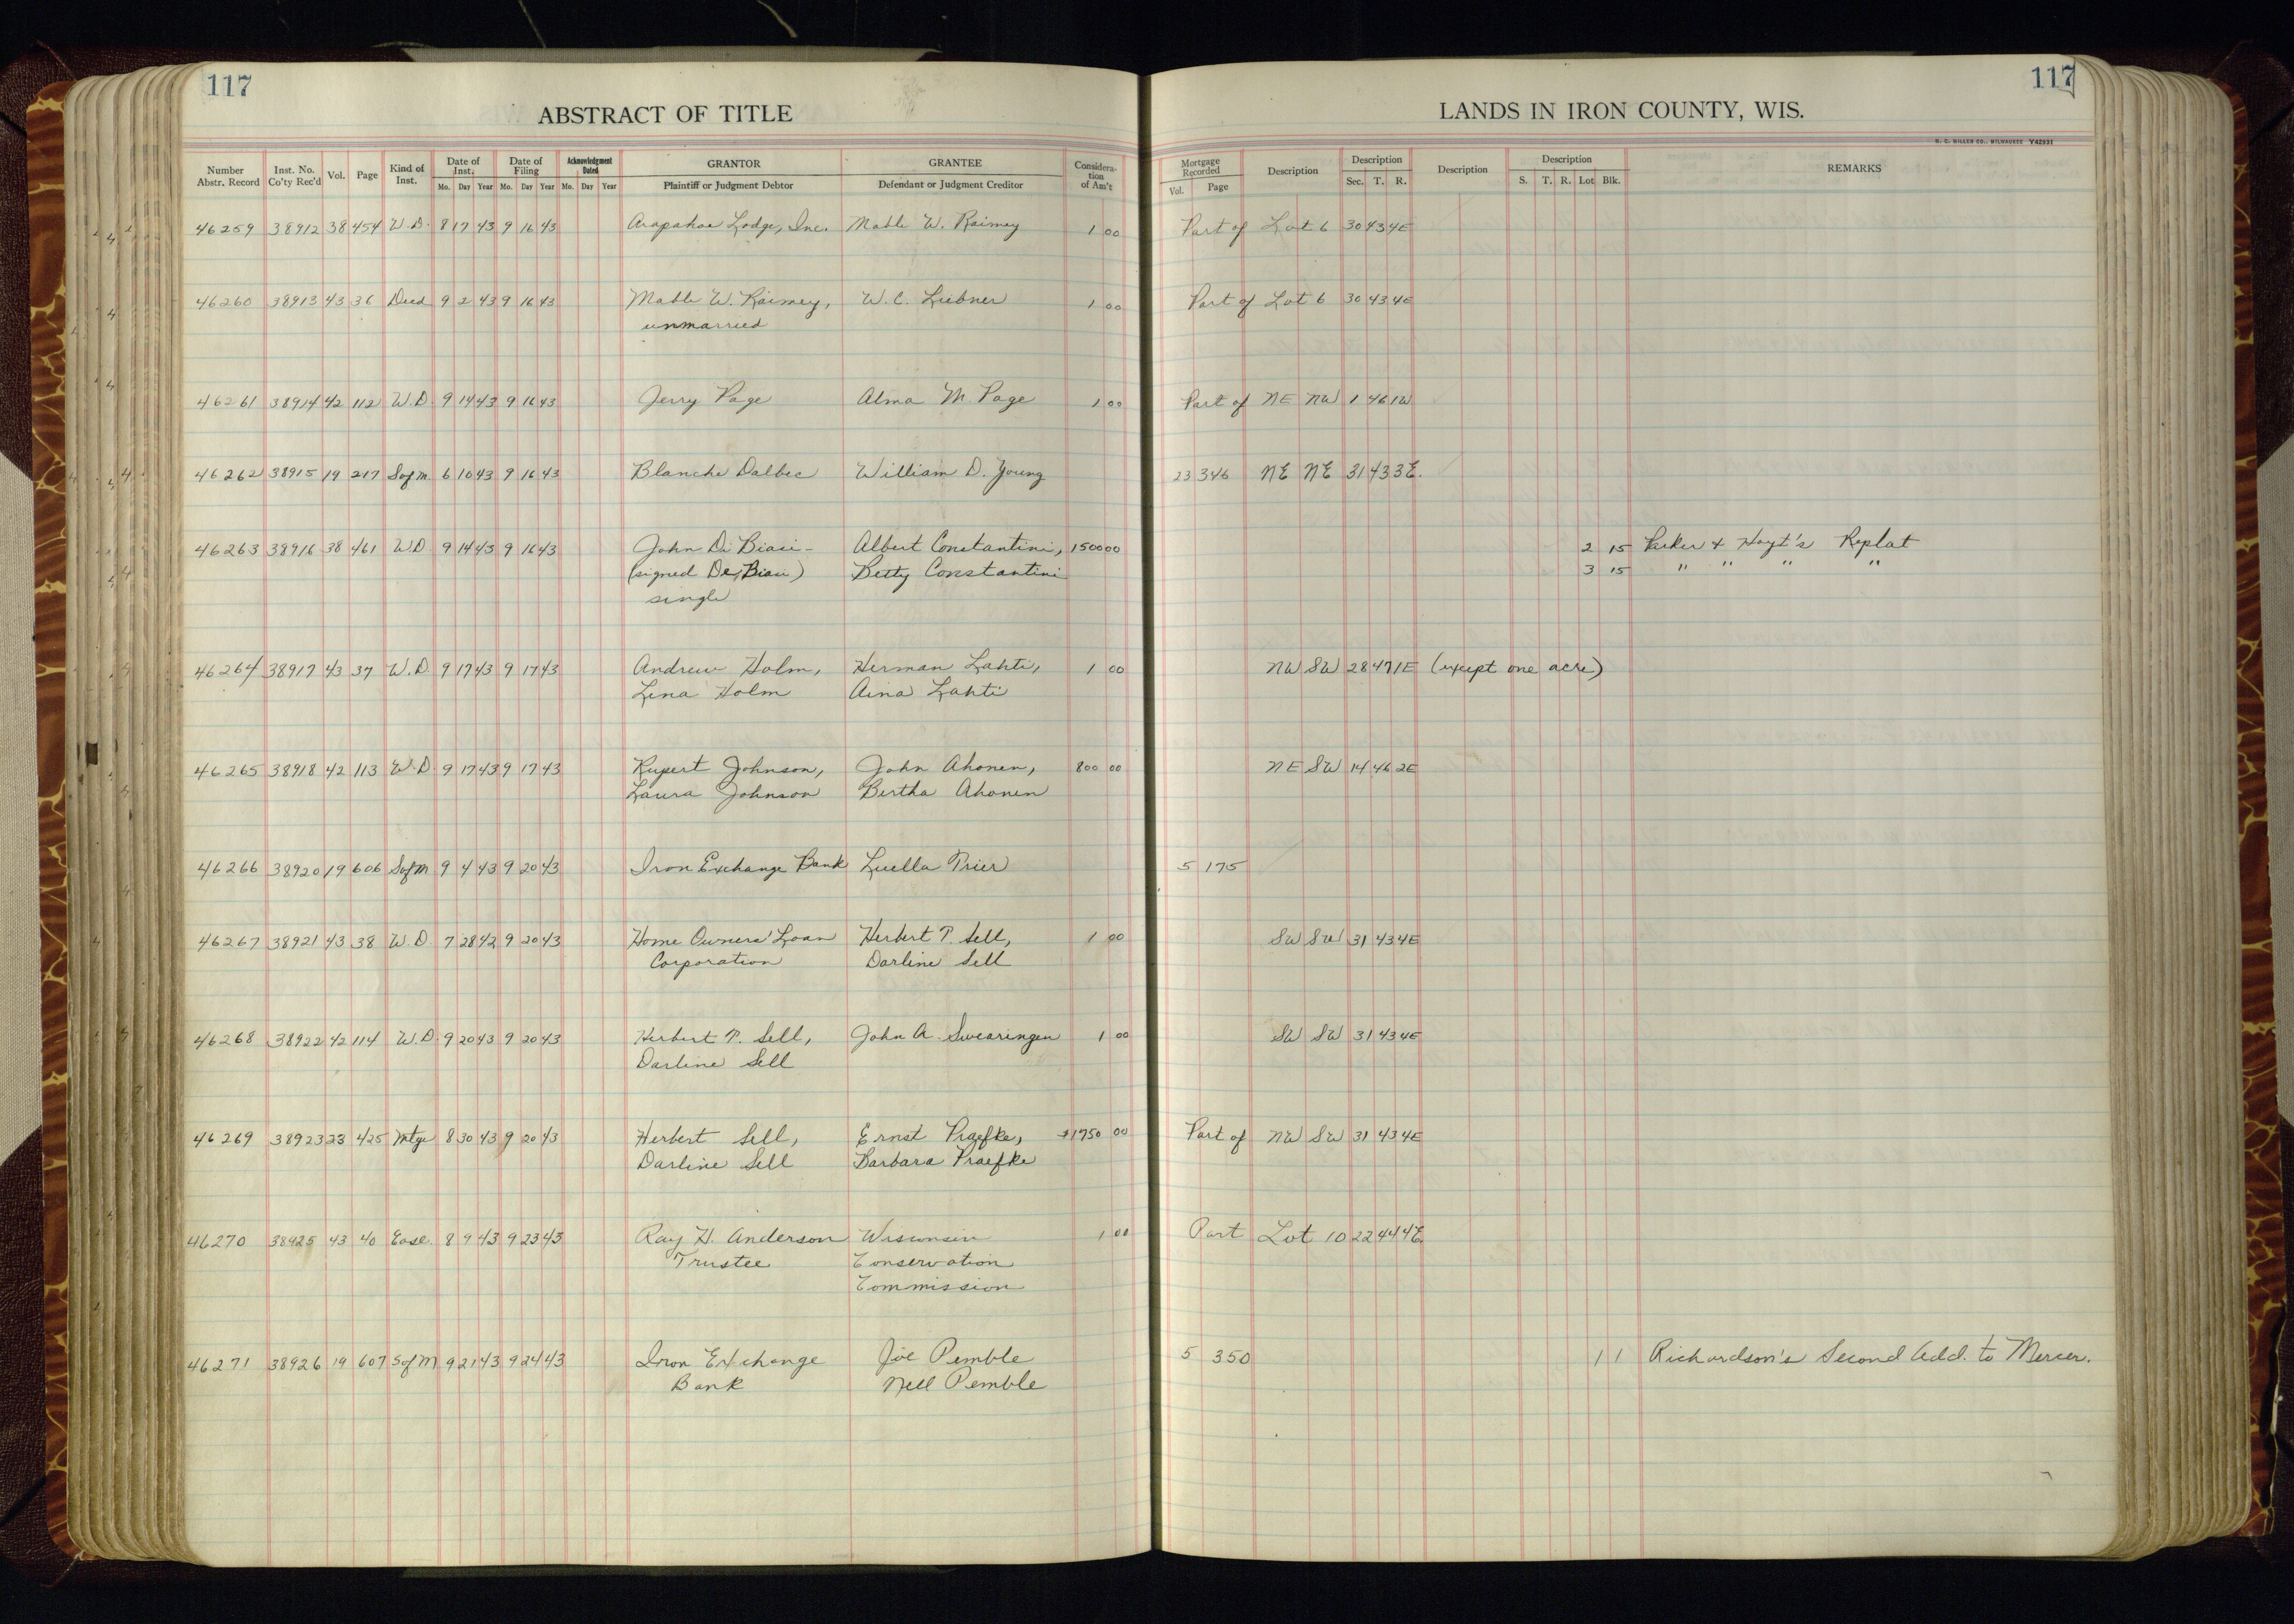 117
117
ABSTRACT OF TITLE
LANDS IN IRON COUNTY, WIS.
H. C. MILLER CO., MILWAUKEE Y42931
Number Abstr. Record Inst. No. Co'ty Rec'd Vol. Page Kind of Inst. Date of Inst. Mo. Day Year Date of Filing Mo. Day Year Acknowledgment Dated Mo. Day Year GRANTOR Plaintiff or Judgment Debtor GRANTEE Defendant or Judgment Creditor Consideration of Am't Mortgage Recorded Vol. Page Description Description Sec. T. R. Description Description S. T. R. Lot Blk. REMARKS
46259 38912 38 454 W.D. 8 17 43 9 16 43 Arapahoe Lodge, Inc. Mable W. Raimey 1 00 Part of Lot 6 30 43 4E
46260 38913 43 36 Deed 9 2 43 9 16 43 Mable W. Raimey, W. C. Liebner 1 00 Part of Lot 6 30 43 4E
unmarried
46261 38914 42 112 W.D. 9 14 43 9 16 43 Jerry Page Alma M. Page 1 00 Part of NE NW 1 46 1W
46262 38915 19 217 Sofm. 6 10 43 9 16 43 Blanche Dalbec William D. Young 23 346 NE NE 31 43 3E.
46263 38916 38 461 W.D 9 14 43 9 16 43 John Di Biasi- Albert Constantini, 1500 00 2 15 Parker & Hoyt's Replat
(signed De Biasi) Betty Constantini 3 15 " " " "
single
46264 38917 43 37 W.D. 9 17 43 9 17 43 Andrew Holm, Herman Lahti, 1 00 NW SW 28 47 1E (except one acre)
Lena Holm Aina Lahti
46265 38918 42 113 W.D 9 17 43 9 17 43 Rupert Johnson, John Ahonen, 800 00 NE SW 14 46 2E
Laura Johnson Bertha Ahonen
46266 38920 19 606 Sofm 9 4 43 9 20 43 Iron Exchange Bank Luella Prier 5 175
46267 38921 43 38 W.D. 7 28 42 9 20 43 Home Owners' Loan Herbert P. Sell, 1 00 SW SW 31 43 4E
Corporation Darline Sell
46268 38922 42 114 W.D. 9 20 43 9 20 43 Herbert P. Sell, John A. Swearingen 1 00 SW SW 31 43 4E
Darline Sell
46269 38923 23 425 Mtge 8 30 43 9 20 43 Herbert Sell, Ernst Praefke, $1750 00 Part of NW SW 31 43 4E
Darline Sell Barbara Praefke
46270 38925 43 40 Ease. 8 9 43 9 23 43 Ray H. Anderson Wisconsin 1 00 Part Lot 10 22 44 4E.
Trustee Conservation
Commission
46271 38926 19 607 SofM 9 21 43 9 24 43 Iron Exchange Joe Pemble 5 350 1 1 Richardson's Second Add. to Mercer.
Bank Nell Pemble